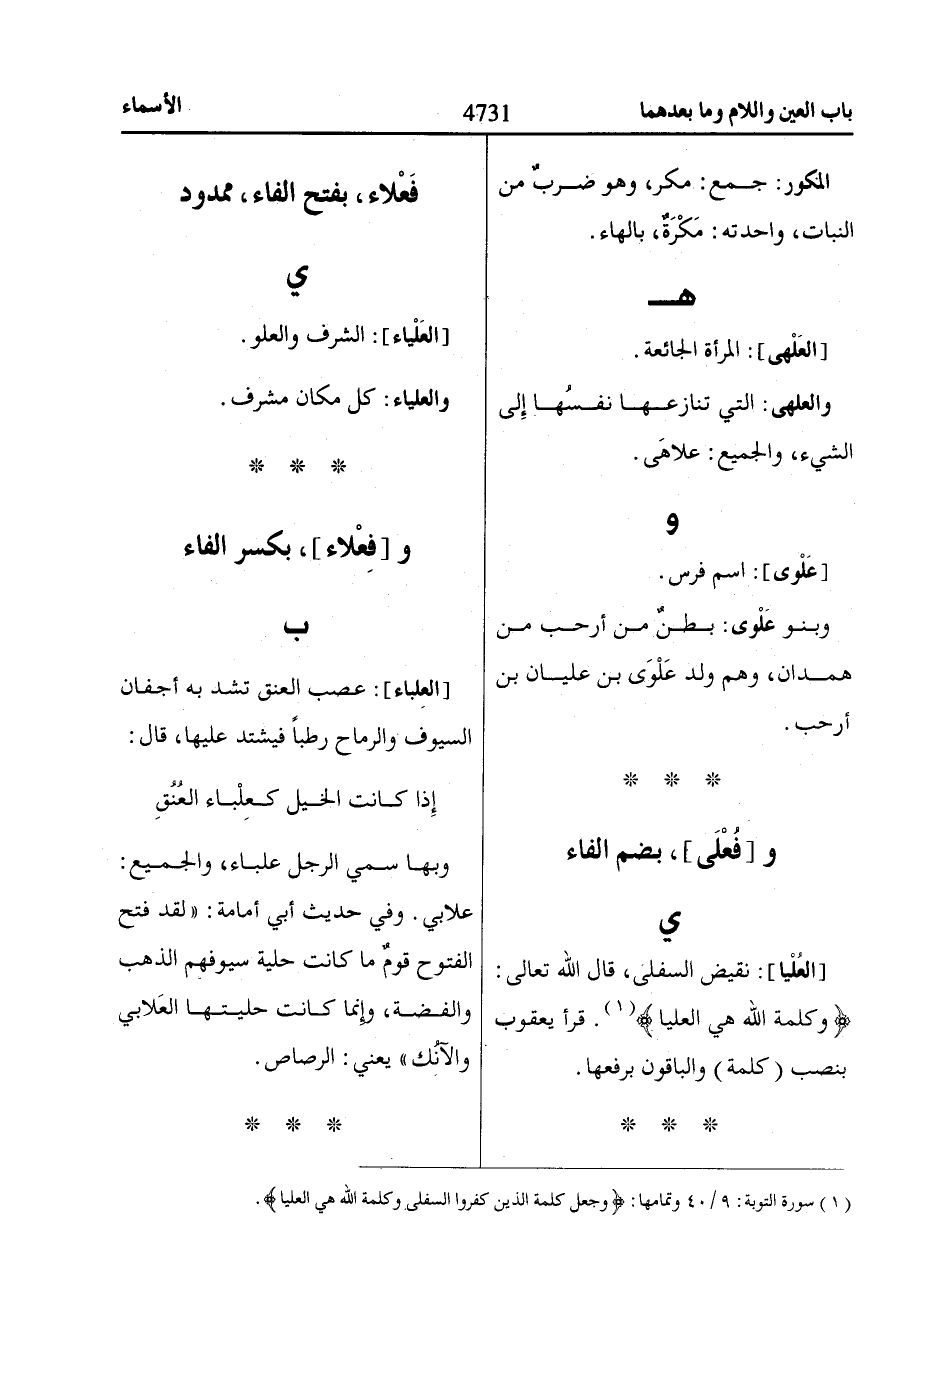 باب العين واللام وما بعدهما 4731 الأسماء
المكور: جمع: مكر، وهو ضربٌ من
النبات، واحدته: مَكْرَةٌ، بالهاء.
هـ
[العَلْهى]: المرأة الجائعة.
والعلهى: التي تنازعها نفسُها إلى
الشيء، والجميع: علاهَى.
و
[عَلْوى]: اسم فرس.
وبنو عَلْوى: بطنٌ من أرحب من
همدان، وهم ولد عَلْوَى بن عليان بن
أرحب.
* * *
و [فُعْلَى]، بضم الفاء
ي
[العُلْيا]: نقيض السفلى، قال الله تعالى:
﴿وكلمة الله هي العليا﴾(١). قرأ يعقوب
بنصب (كلمة) والباقون برفعها.
* * *
فَعْلاء، بفتح الفاء، ممدود
ي
[العَلْياء]: الشرف والعلو.
والعلياء: كل مكان مشرف.
* * *
و [فِعْلاء]، بكسر الفاء
ب
[العِلباء]: عصب العنق تشد به أجفان
السيوف والرماح رطباً فيشتد عليها، قال:
إذا كانت الخيل كعِلْباء العُنُقِ
وبها سمي الرجل علباء، والجميع:
علابي. وفي حديث أبي أمامة: «لقد فتح
الفتوح قومٌ ما كانت حلية سيوفهم الذهب
والفضة، وإنما كانت حليتها العَلابي
والآنُك» يعني: الرصاص.
* * *
(١) سورة التوبة: ٩/٤٠ وتمامها: ﴿وجعل كلمة الذين كفروا السفلى وكلمة الله هي العليا﴾.